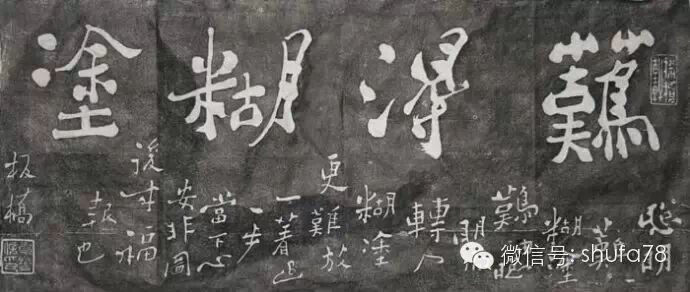 難得糊塗
聰明
難
糊塗
難
轉入
糊塗
更難放
一著退
一步
當下心
安非圖
後來福
報也
板橋
微信号: shufa78